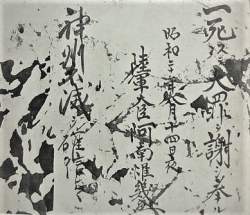 一死以テ大罪ヲ謝シ奉ル
昭和二十年八月十四日夜
陸軍大臣阿南惟幾
神州不滅ヲ確信シツヽ